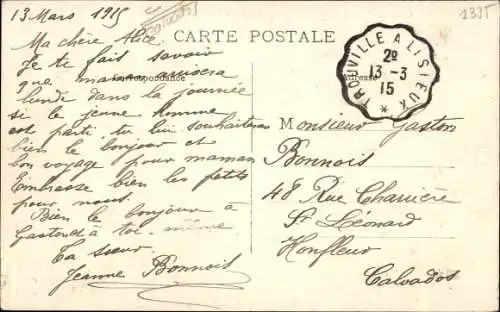 13 Mars 1915
(Calvados)
2335
CARTE POSTALE
Correspondance
Adresse
TROUVILLE A LISIEUX
2º
13-3
15
Ma chère Alice
Je te fais savoir
que maman
lundi dans la journée
si le jeune homme
est parti, tu lui souhaiteras
bien le bonjour et
bon voyage pour maman
Embrasse bien les petits
pour nous.
Bien le bonjour à
Gaston & à toi même
Ta sœur
Jeanne Bonnois
Monsieur Gaston
Bonnois
48 Rue Charrière
St Léonard
Honfleur
Calvados